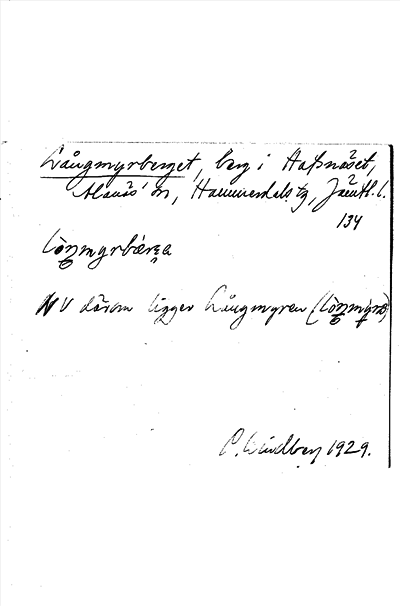 Långmyrberget, berg i Hafsnäset,
Alanäs sn, Hammerdals tg, Jämtl. l.
134
lòŋmyrbærʒa
NV därom ligger Långmyren (lòŋmyra)
P. Lindberg 1929.